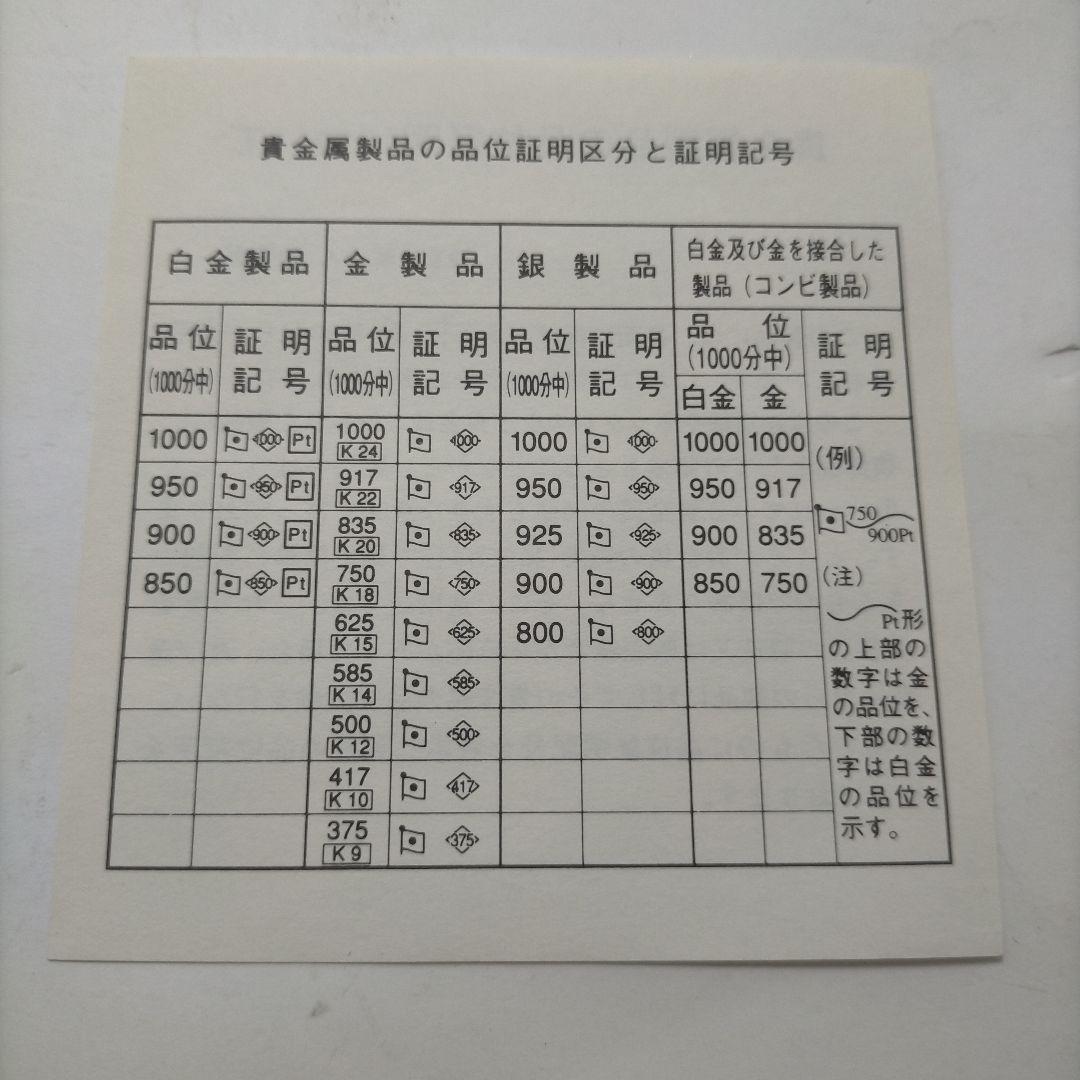 貴金属製品の品位証明区分と証明記号
白金製品 金製品 銀製品 白金及び金を接合した
製品（コンビ製品）
品位 証明 品位 証明 品位 証明 品位 証明
(1000分中) 記号 (1000分中) 記号 (1000分中) 記号 (1000分中) 記号
白金 金
1000 1000 Pt 1000 1000 1000 1000 1000 1000 (例)
K 24
950 950 Pt 917 917 950 950 950 917
K 22
750
900 900 Pt 835 835 925 925 900 835
K 20
900Pt
850 850 Pt 750 750 900 900 850 750 (注)
K 18
625 625 800 800 Pt形
K 15
の上部の
585 585 数字は金
K 14
の品位を、
500 500 下部の数
K 12
字は白金
417 417 の品位を
K 10
375 375 示す。
K 9